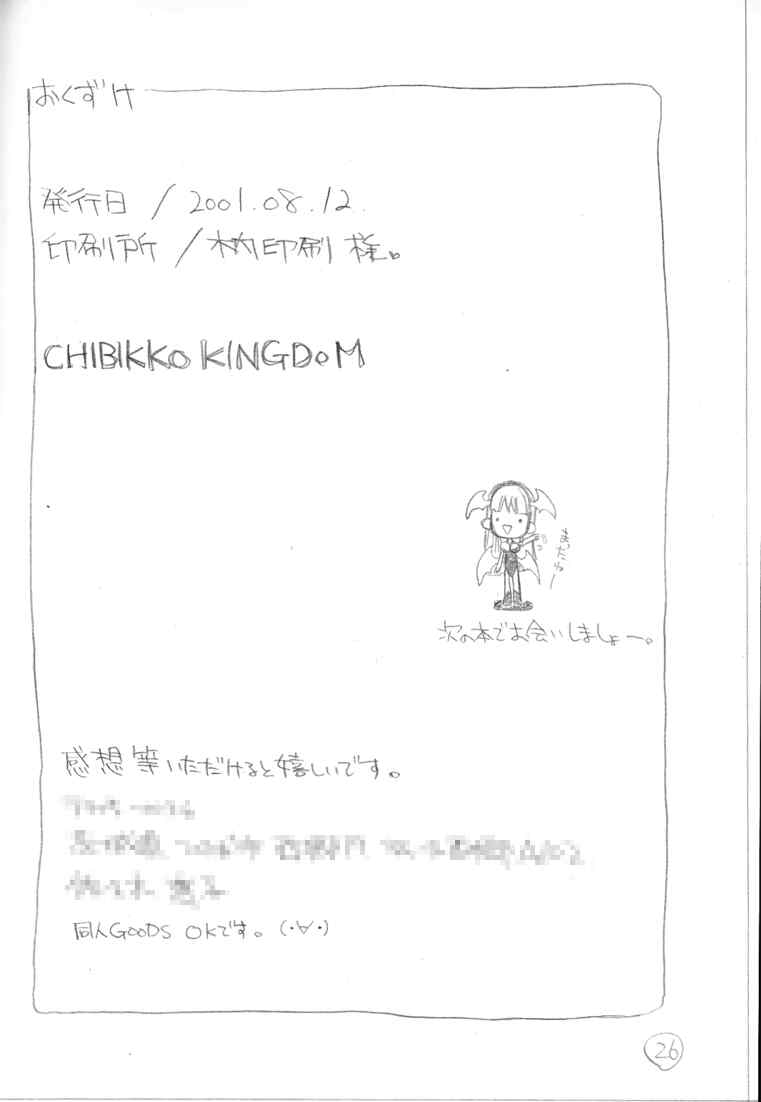 おくずけ
発行日 / 2001.08.12.
印刷所 / 栄光印刷 様。
CHIBIKKO KINGDOM
またねー
次の本でお会いしましょー。
感想等いただけると嬉しいです。
同人GOODS OKです。(・∀・)
26